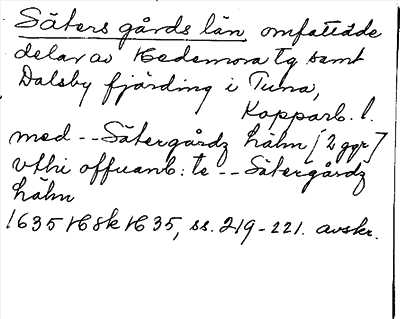 Säters gårds län omfattade
delar av Hedemora tg samt
Dalsby fjärding i Tuna,
Kopparb. l.
med -- Sätergårdz hälm [2 ggr]
vthi offuanb:te -- Sätergårdz
hälm
1635 HSk H 35, ss. 219-221. avskr.